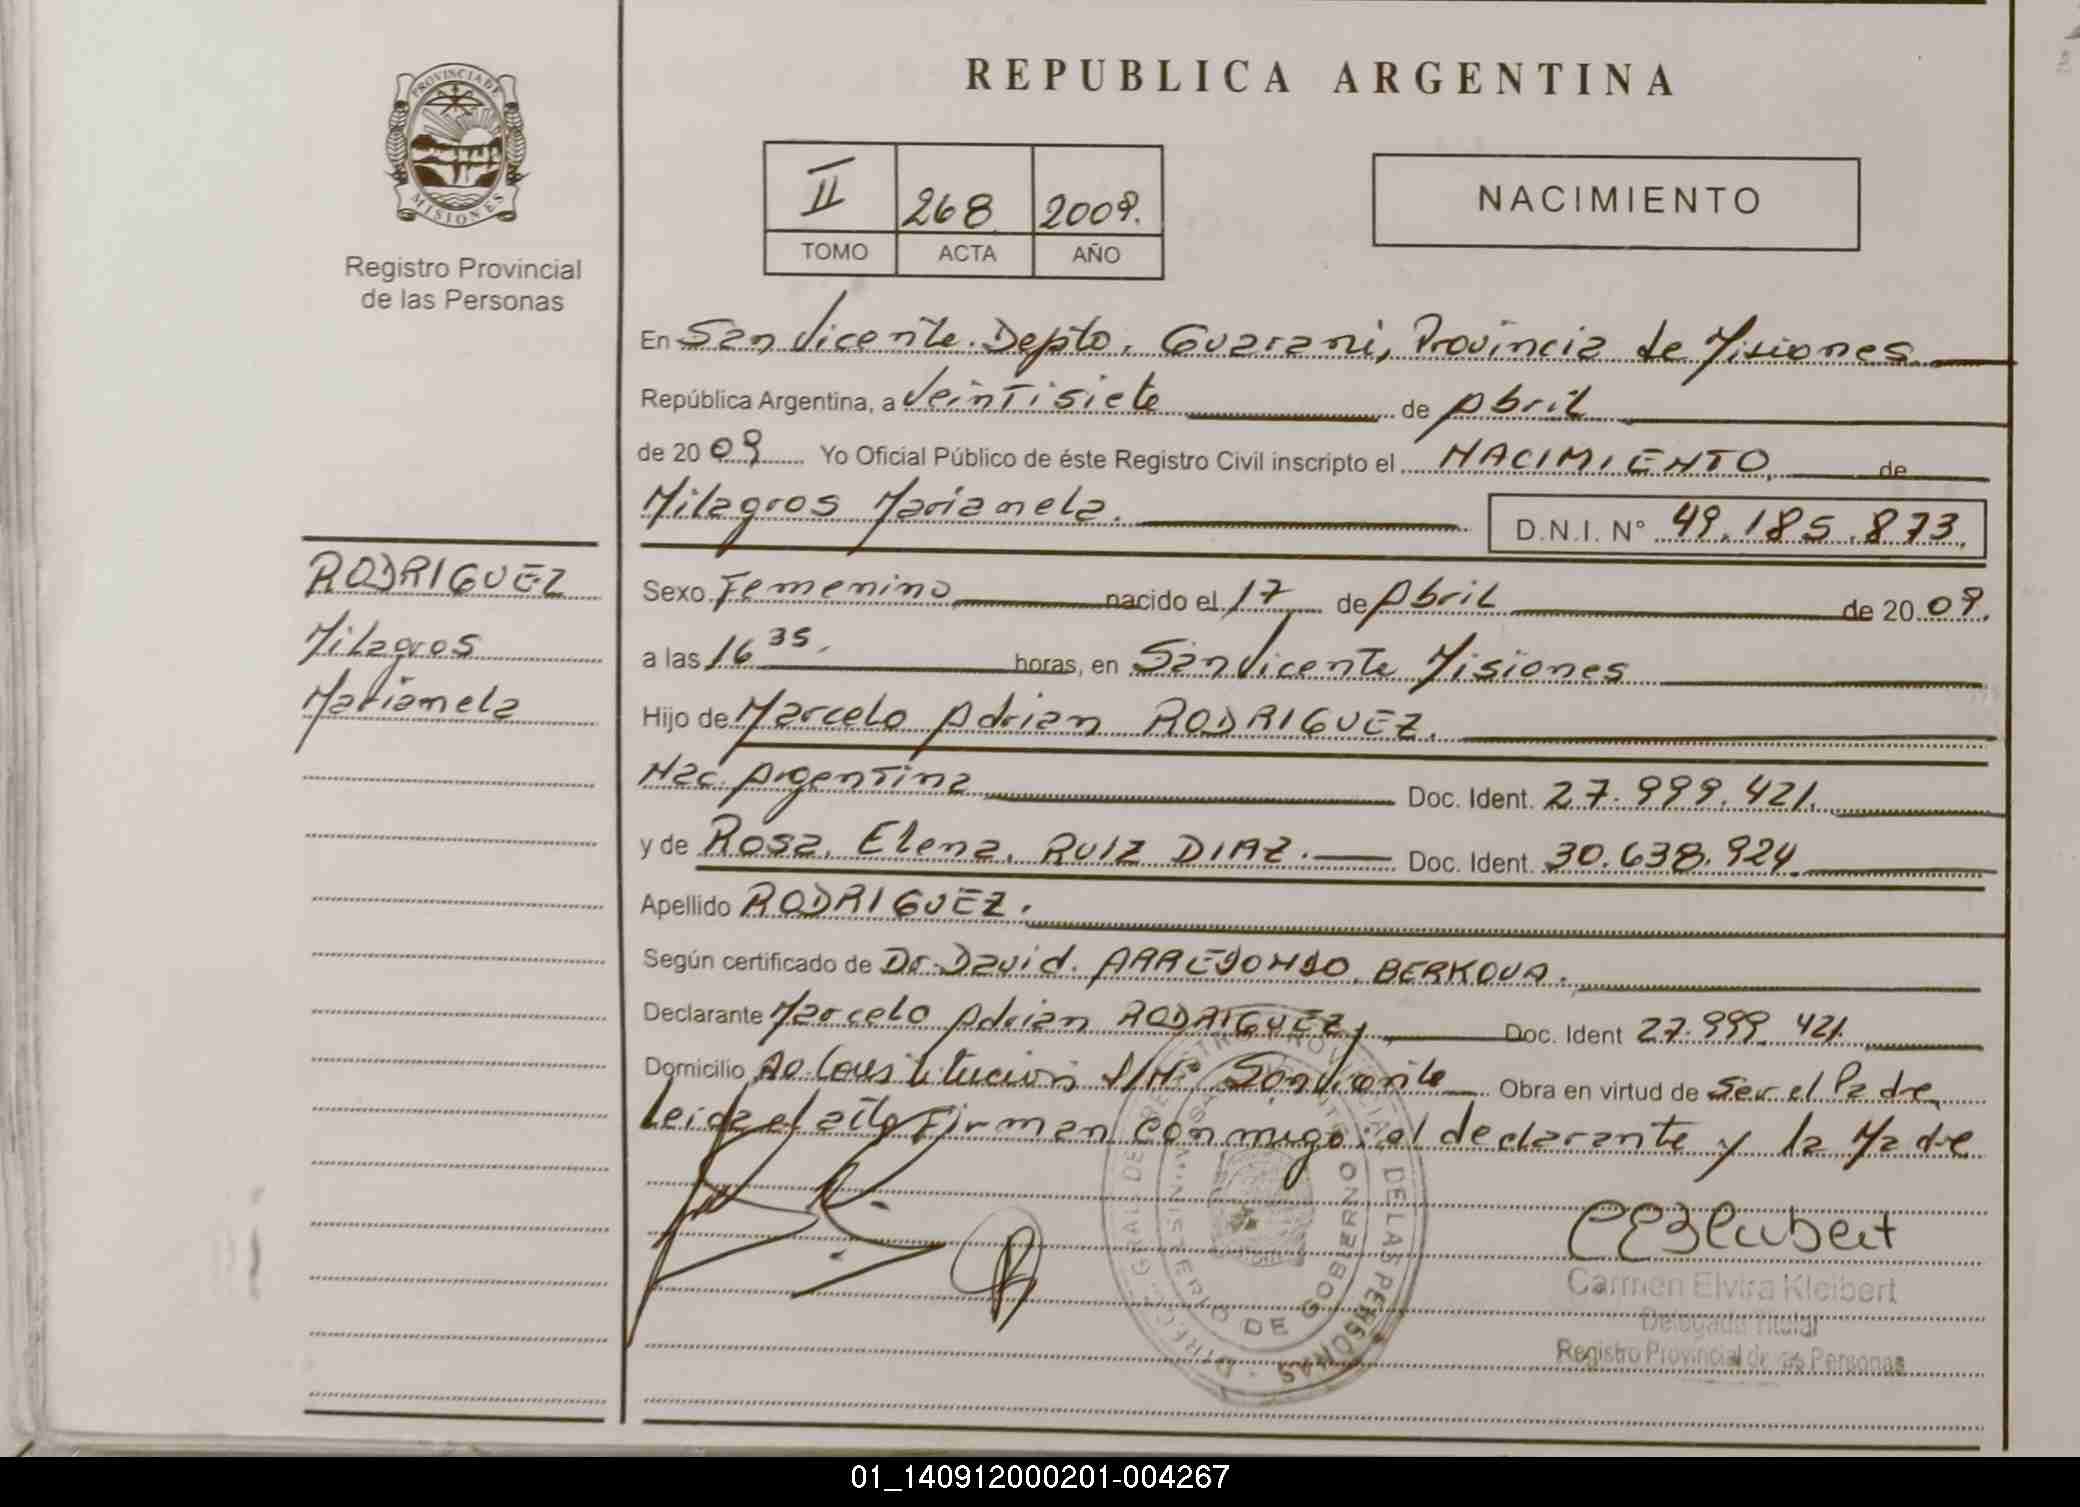 PROVINCIA DE
MISIONES
Registro Provincial
de las Personas
RODRIGUEZ
Milagros
Marianela
REPUBLICA ARGENTINA
II 268 2009.
TOMO ACTA AÑO
NACIMIENTO
En San Vicente. Depto. Guaraní, Provincia de Misiones
República Argentina, a Veintisiete de Abril
de 2009 Yo Oficial Público de éste Registro Civil inscripto el NACIMIENTO de
Milagros Marianela. D.N.I. N° 49.185.873.
Sexo Femenino nacido el 17 de Abril de 2009.
a las 16 35. horas, en San Vicente Misiones
Hijo de Marcelo Adrian RODRIGUEZ.
Nac. Argentina Doc. Ident. 27.999.421.
y de Rosa Elena RUIZ DIAZ. Doc. Ident. 30.638.924
Apellido RODRIGUEZ.
Según certificado de Dr. David ARREDONDO BERKOVA.
Declarante Marcelo Adrian RODRIGUEZ, Doc. Ident 27.999.421.
Domicilio Av. Constitucion S/Nº San Vicente Obra en virtud de Ser el Padre
Leida el acta Firman conmigo: el declarante y la Madre
DELAS PERSONAS
MINISTERIO DE GOBIERNO
Carmen Elvira Kleibert
Delegada Titular
Registro Provincial de las Personas
01_140912000201-004267